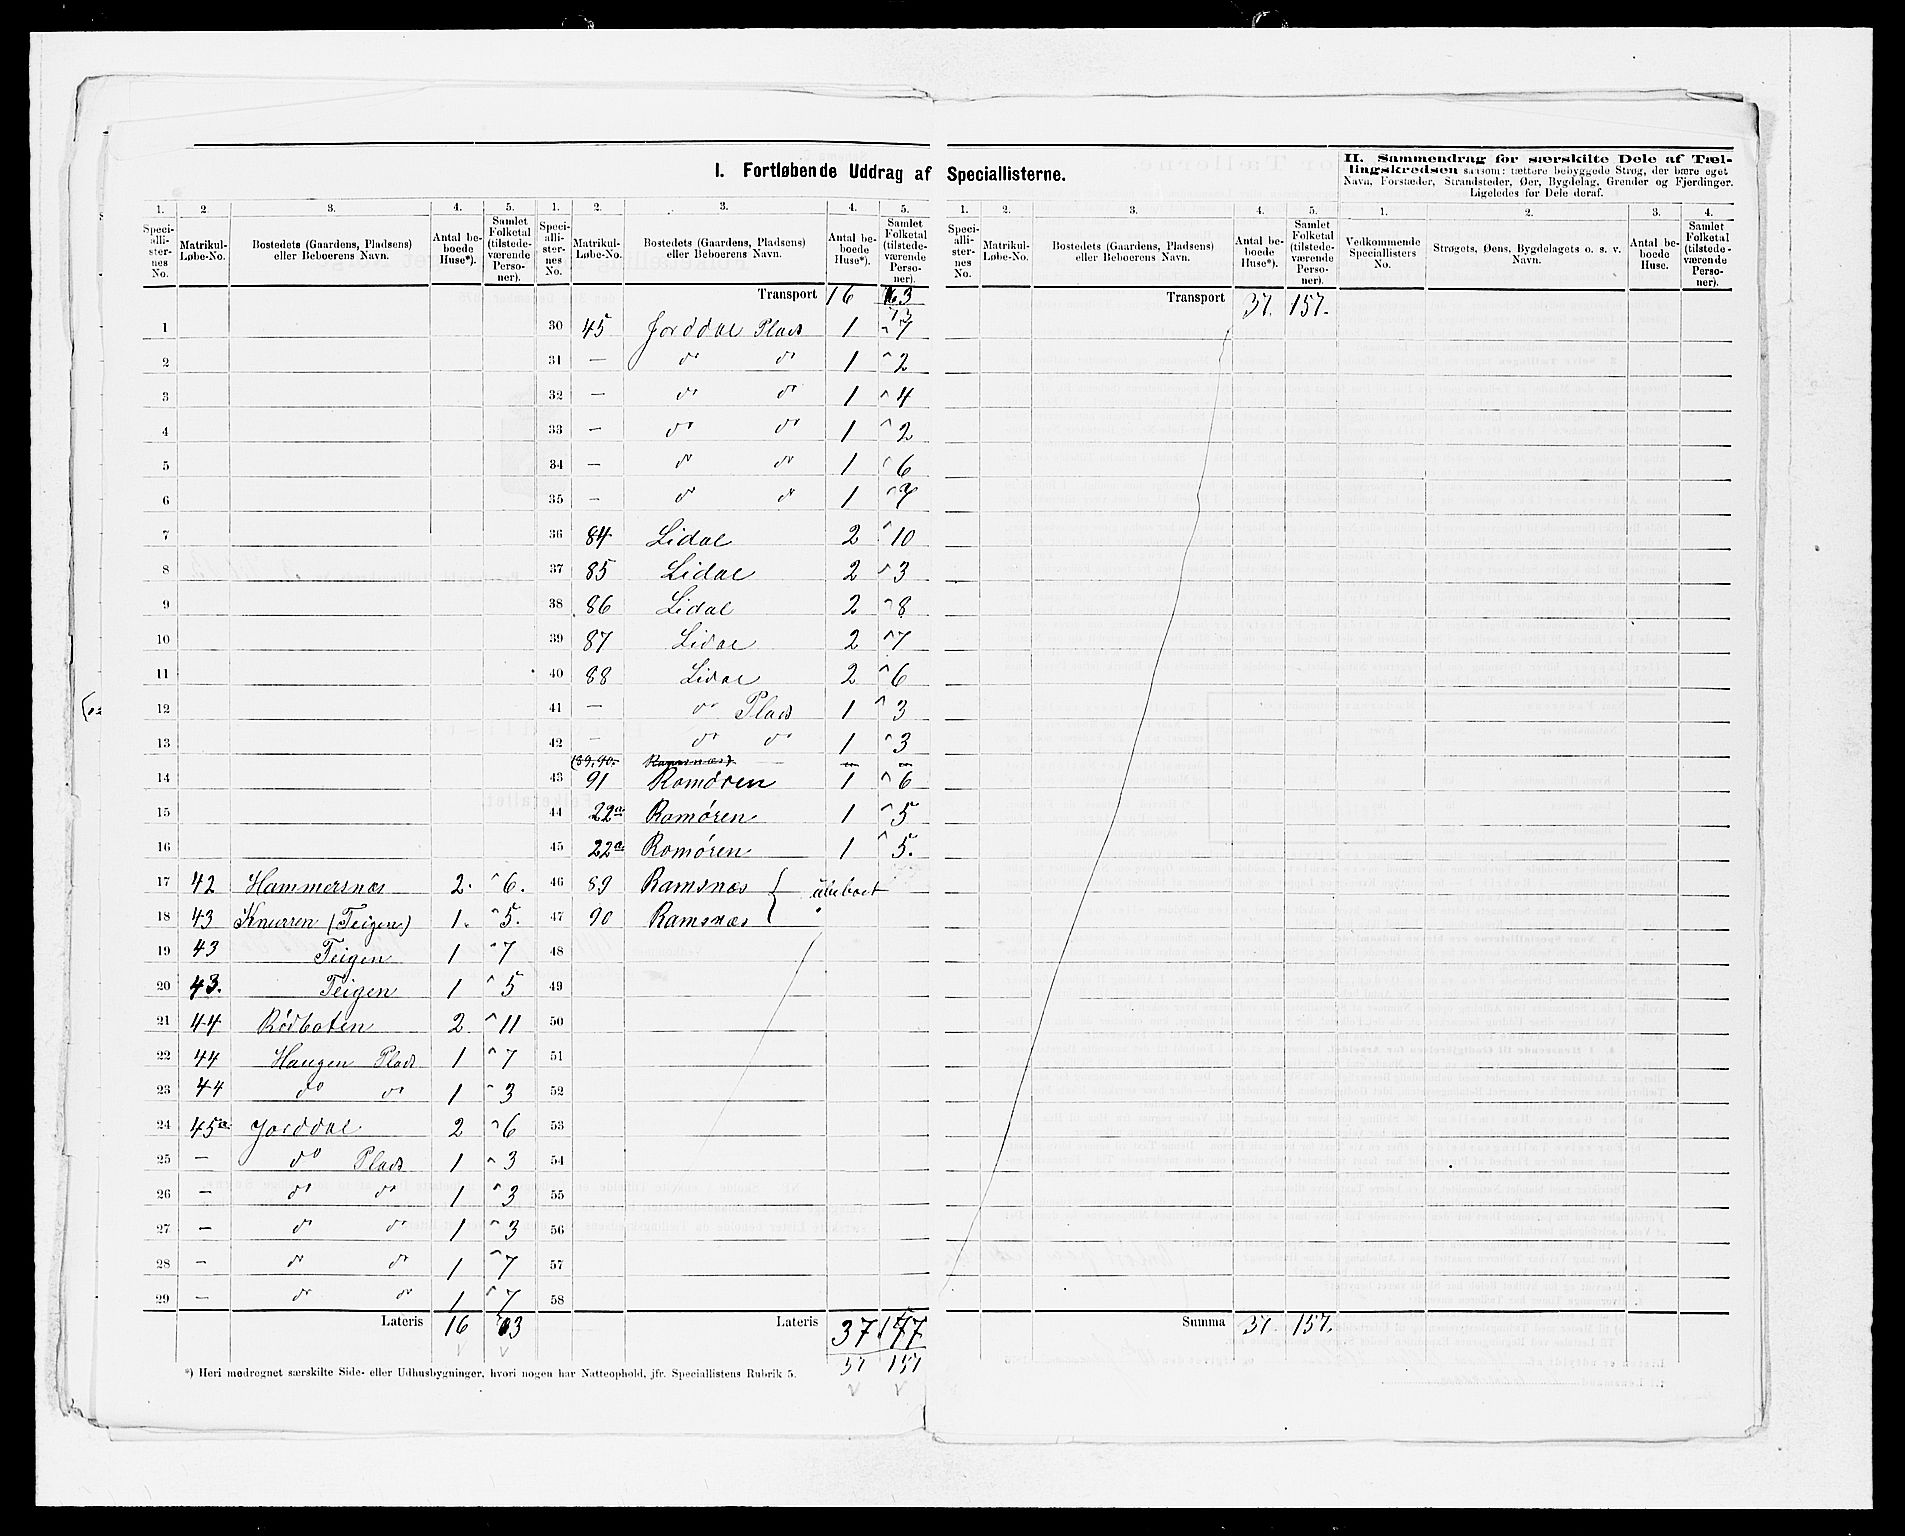 I. Fortløbende Uddrag af Speciallisterne.
II. Sammendrag for særskilte Dele af Tællingskredsen saasom: tættere bebyggede Strøg, der bære eget
Navn, Forstæder, Strandsteder, Øer, Bygdelag, Grender og Fjerdinger.
Ligeledes for Dele deraf.
1. 2. 3. 4. 5. 1. 2. 3. 4. 5. 1. 2. 3. 4. 5. 1. 2. 3. 4.
Speciallisternes No. Matrikul-Løbe-No. Bostedets (Gaardens, Pladsens) eller Beboerens Navn. Antal beboede Huse*). Samlet Folketal (tilstedeværende Personer).
Speciallisternes No. Matrikul-Løbe-No. Bostedets (Gaardens, Pladsens) eller Beboerens Navn. Antal beboede Huse*). Samlet Folketal (tilstedeværende Personer).
Speciallisternes No. Matrikul-Løbe-No. Bostedets (Gaardens, Pladsens) eller Beboerens Navn. Antal beboede Huse*). Samlet Folketal (tilstedeværende Personer).
Vedkommende Speciallisters No. Strøgets, Øens, Bygdelagets o. s. v. Navn. Antal beboede Huse. Samlet Folketal (tilstedeværende Personer).
1
2
3
4
5
6
7
8
9
10
11
12
13
14
15
16
17 42 Hammersnæs 2. 6.
18 43 Knurren (Teigen) 1. 5.
19 43 Teigen 1 7
20 43. Teigen 1 5
21 44 Rødboten 2 11
22 44 Haugen Plads 1 7
23 44 do do 1 3
24 45a Jorddal 2 6
25 — do Plads 1 3
26 — do do 1 3
27 — do do 1 3
28 — do do 1 7
29 — do do 1 7
Lateris 16 73
Transport 16 73
30 45 Jorddal Plads 1 7
31 — do do 1 2
32 — do do 1 4
33 — do do 1 2
34 — do do 1 6
35 — do do 1 7
36 84 Lidal 2 10
37 85 Lidal 2 3
38 86 Lidal 2 8
39 87 Lidal 2 7
40 88 Lidal 2 6
41 — do Plads 1 3
42 — do do 1 3
(89, 90. Ramsnæs)
43 91 Romøren 1 6
44 22a Romøren 1 5
45 22a Romøren 1 5.
46 89 Ramsnæs } ubeboet
47 90 Ramsnæs }
48
49
50
51
52
53
54
55
56
57
58
Lateris 37 147
37 157
*) Heri medregnet særskilte Side- eller Udhusbygninger, hvori nogen har Natteophold, jfr. Speciallistens Rubrik 5.
Transport 37. 157.
Summa 37. 157.